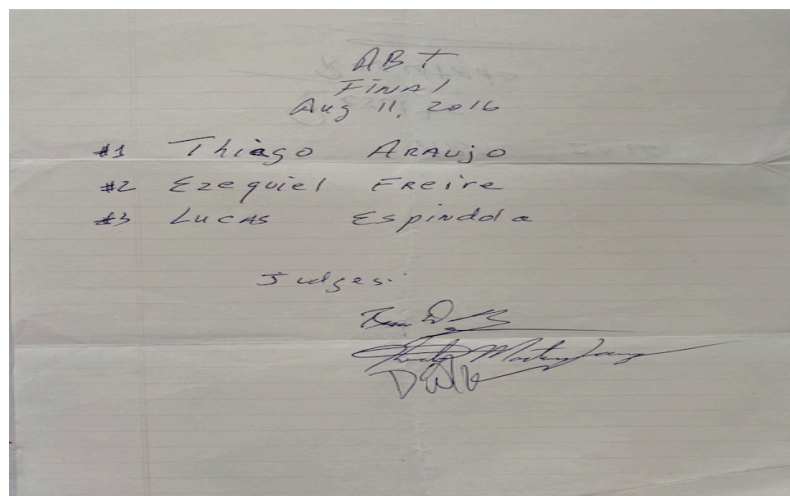 ABT
Final
Aug 11, 2016
#1 Thiago Araujo
#2 Ezequiel Freire
#3 Lucas Espindola
Judges: